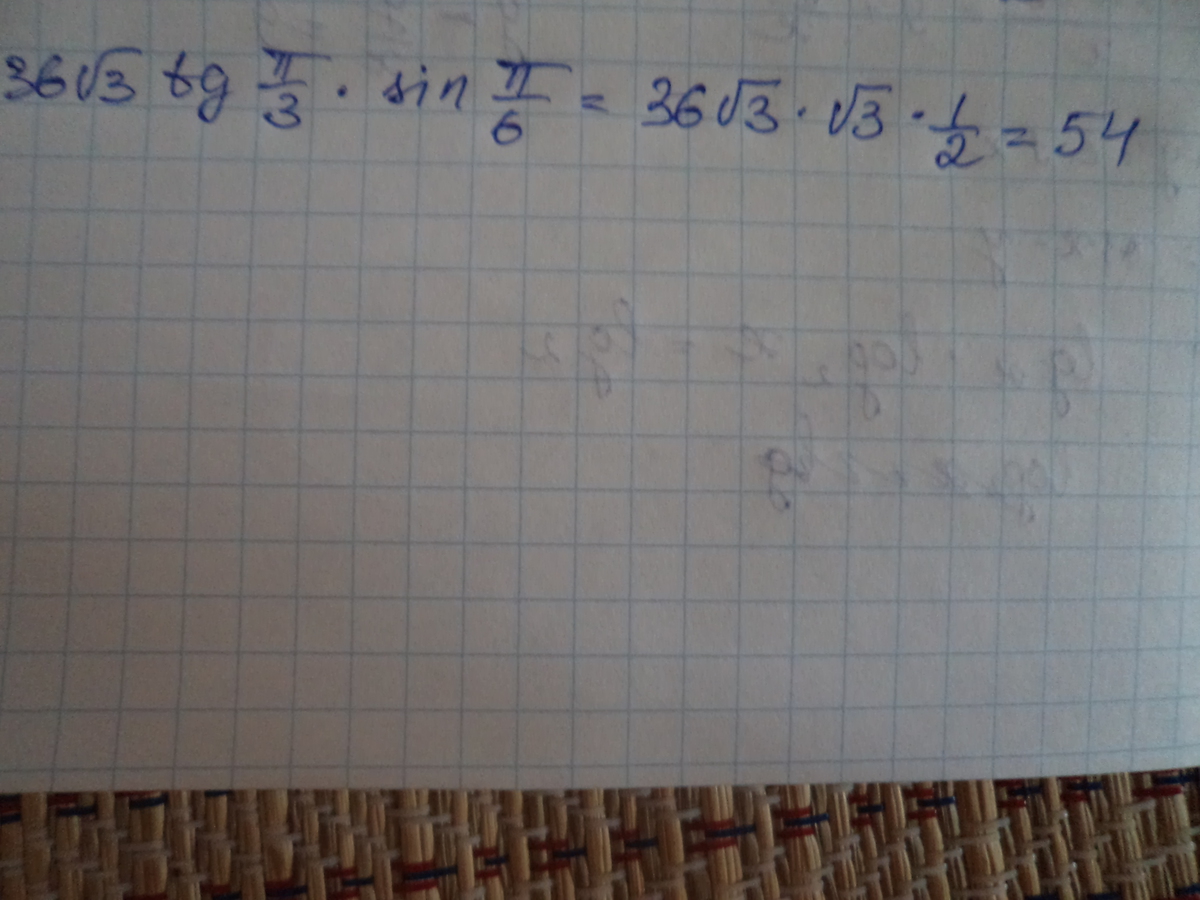 36√3 tg π/3 · sin π/6 = 36√3 · √3 · 1/2 = 54